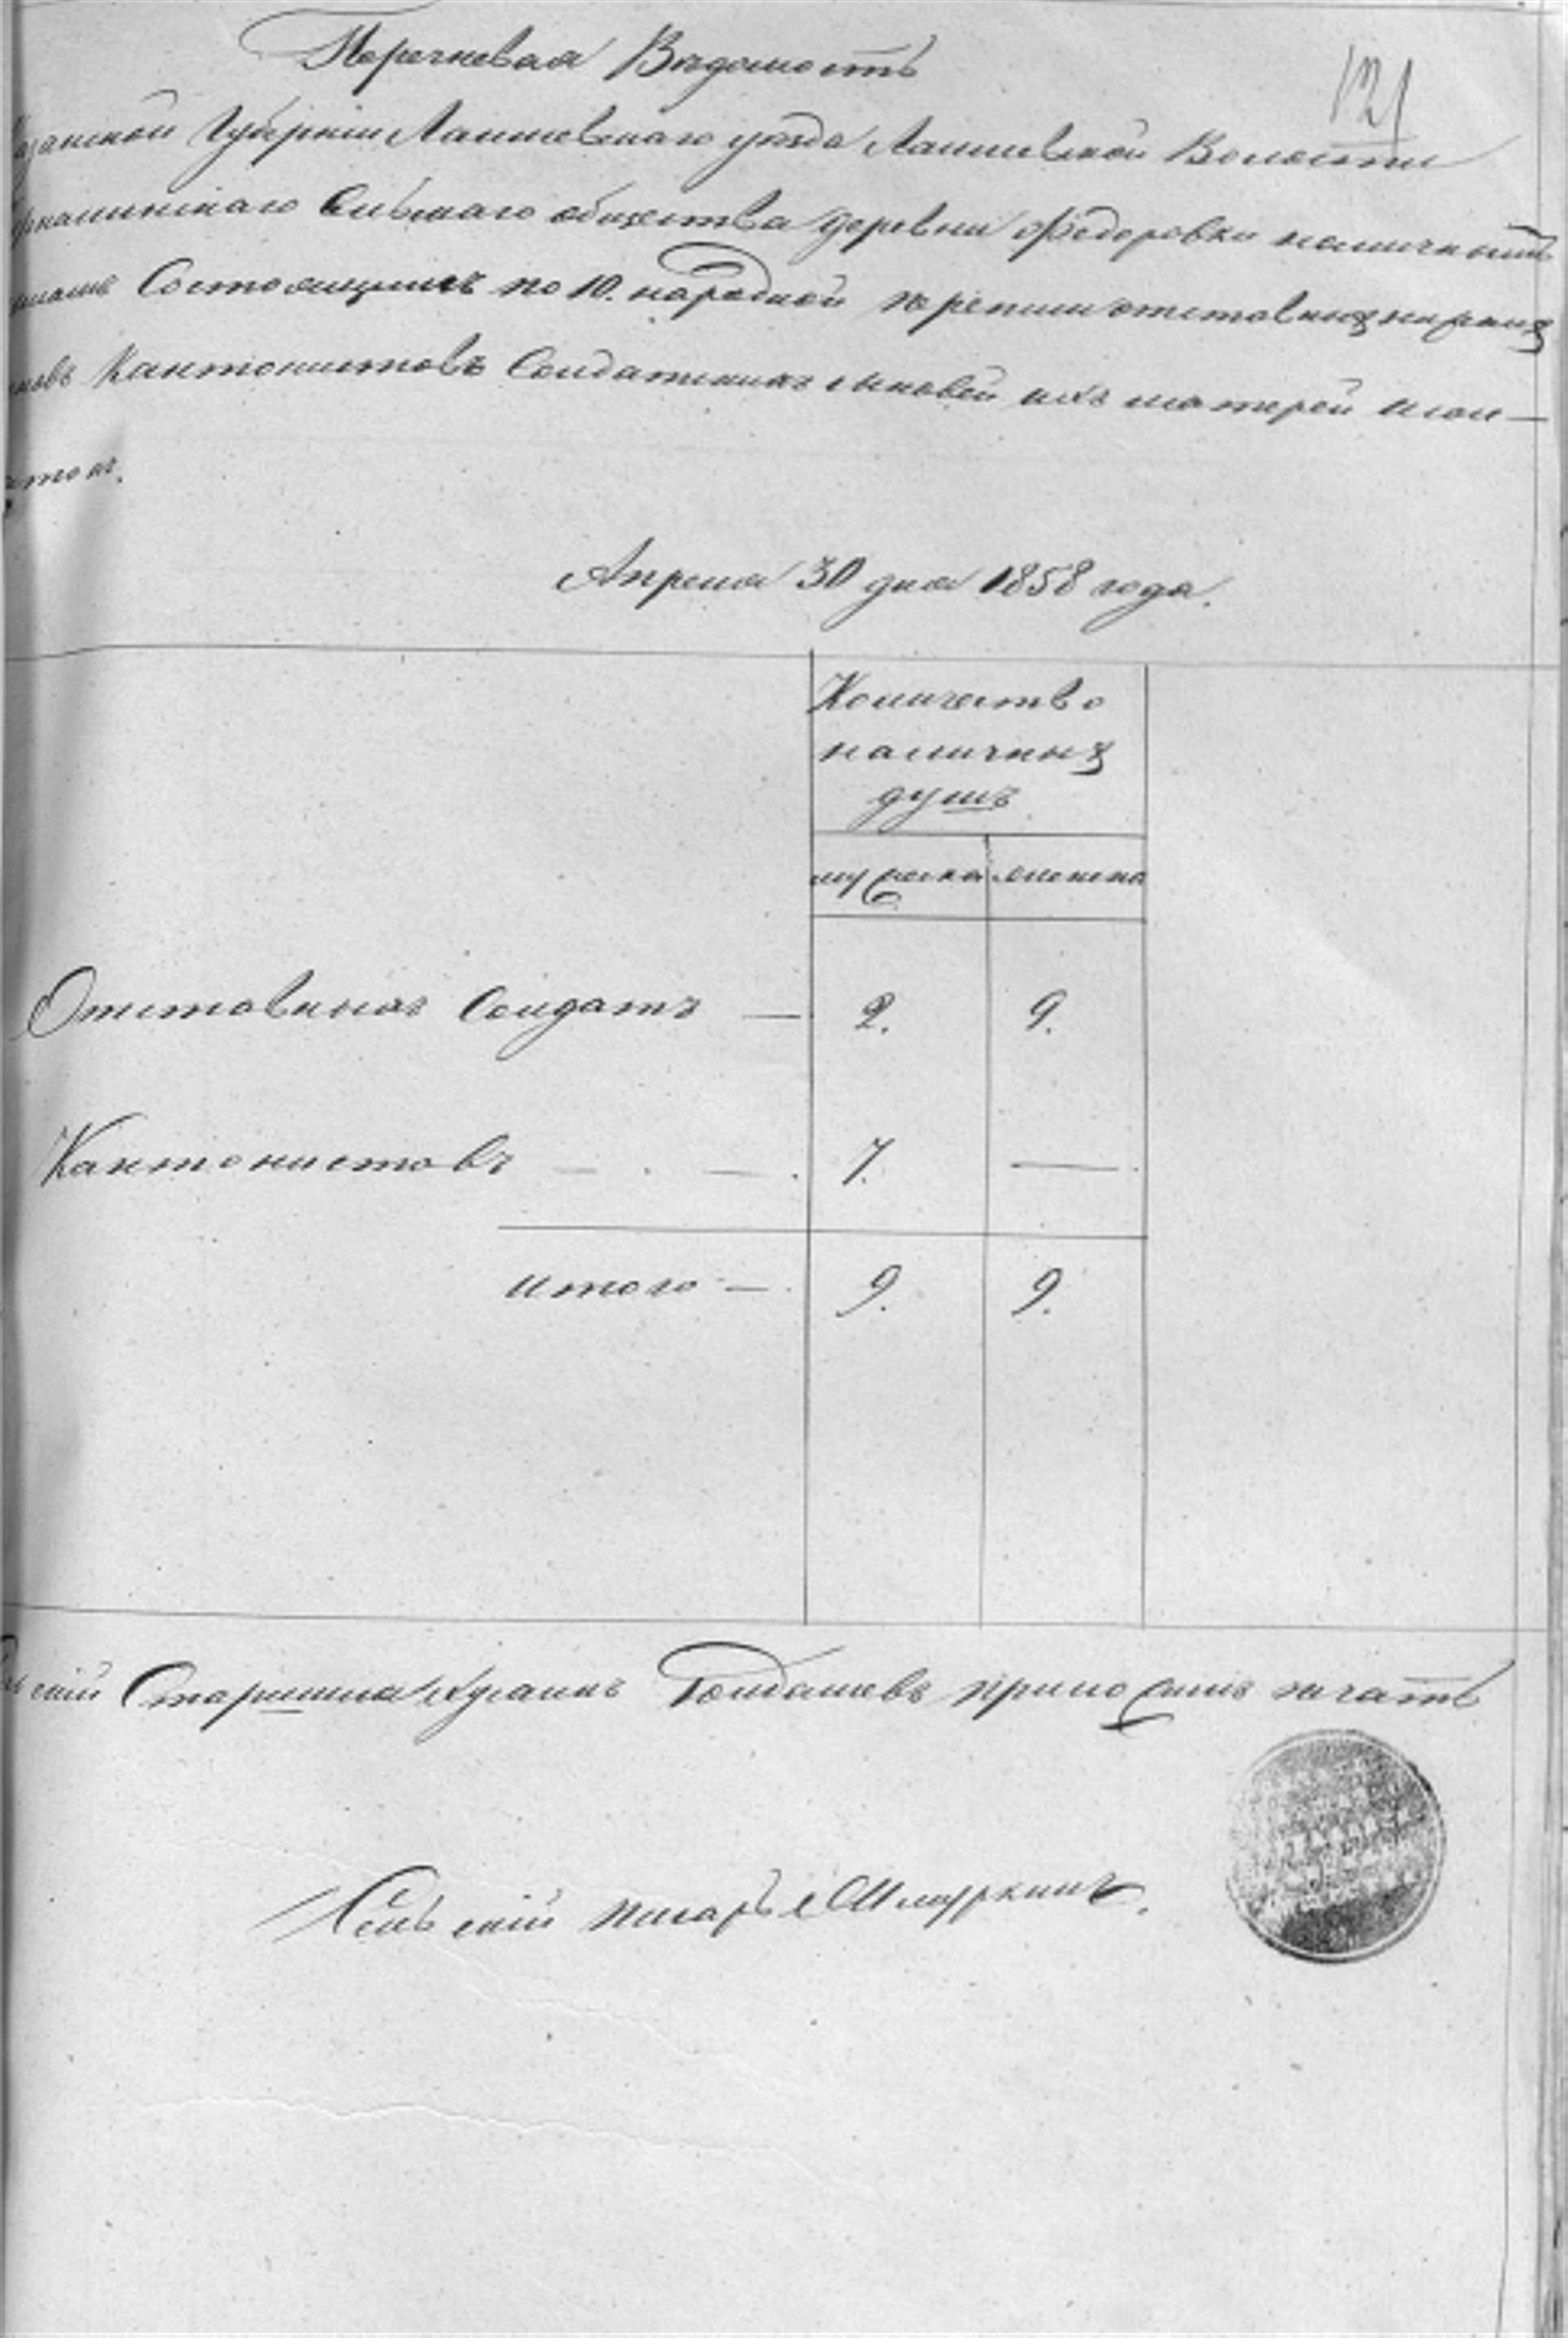 Перечневая Ведомость
121
Казанской Губерніи Лаишевскаго уезда Лаишевской Волости
Сельскаго общества деревни Федоровки наличнымъ
Состоящимъ по 10. народной переписи отставныхъ нижнихъ
Кантонистовъ Солдатскихъ сыновей ихъ матерей и
Апреля 30 дня 1858 года.
Количество
наличныхъ
душъ
мужеска женска
Отставныхъ Солдатъ — 2. 9.
Кантонистовъ — . — . 7. — .
Итого — . 9. 9.
Старшина приложилъ печать
Сельскій писарь Шмуркинъ.